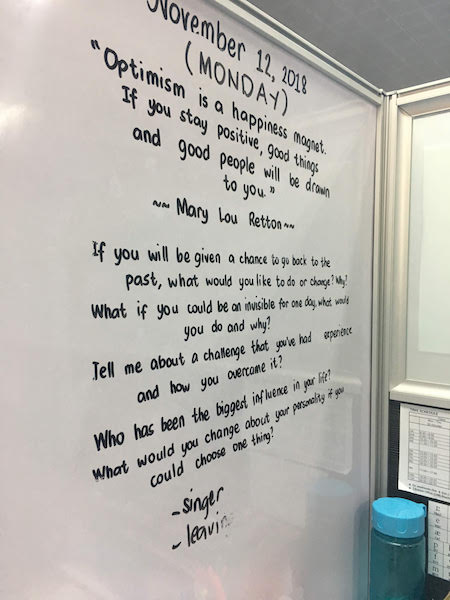 November 12, 2018
(MONDAY)
"Optimism is a happiness magnet.
If you stay positive, good things
and good people will be drawn
to you."
~~ Mary Lou Retton ~~
If you will be given a chance to go back to the
past, what would you like to do or change? Why?
What if you could be an invisible for one day, what would
you do and why?
Tell me about a challenge that you've had experience
and how you overcame it?
Who has been the biggest influence in your life?
What would you change about your personality if you
could choose one thing?
- singer